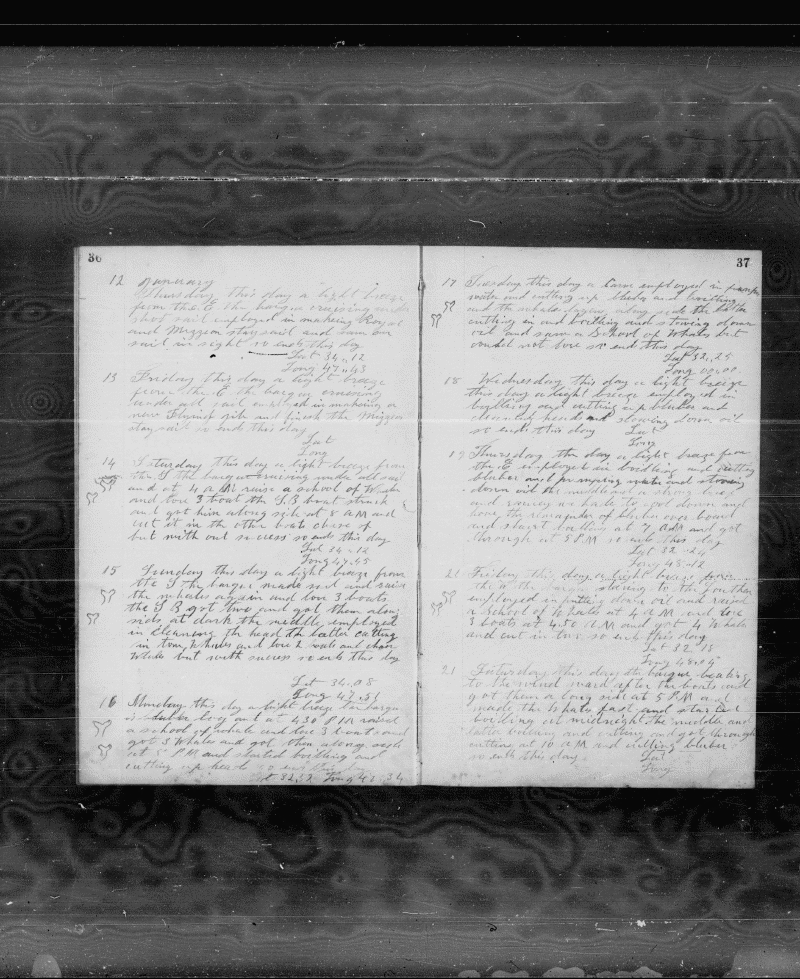 36
12 January
Thursday this day a light breeze
from the E the barque cruising under
short sail employed in makeing Royal
and Mizzen staysail and saw one
sail in sight so ends this day
Lat 34,,12
Long 47,,43
13 Friday this day a light breeze
from the E the barque cruising
under all sail employed in makeing a
new Flying jib and finish the Mizzen
staysail so ends this day
Lat
Long
14 Saturday this day a light breeze from
the S the barque cruising under all sail
and at 4 AM raise a school of Whales
and lore 3 boat the S.B boat struck
and got him along side at 8 AM and
cut it in the other boats chase
but with out sucess so ends this day
Lat 34-12
Long 47-45
15 Sunday this day a light breeze from
the S the barque made sail and raise
the whales again and lore 3 boats
the S B got two and got them along
side at dark the middle employed
in cleaning the head the latter cutting
in two Whales and lore 2 boats and chase
Whales but with sucess so ends this day
Lat 34,08
Long 47,51
16 Munday this day a light breeze the barque
at 430 PM raised
a school of whale and lore 3 boats and
got 3 Whales and got them along side
at 8 PM and started boilling and
cutting up heads so ends this day
Lat 32,52 Long 48,34
37
17 Tuesday this day a Carm employed in
water and cutting up bluber and boilling
and the whales laying along side the latter
cutting in and boilling and stowing down
oil and saw a School of Whales but
could not lore so ends this day
Lat 32,,25
Long 00,,00
18 Widnesday this day a light breeze
this day a light breeze employed in
boilling and cutting up bluber and
cleaning heads and stowing down oil
so ends this day Lat
Long
19 Thursday this day a light breeze from
the E employed in boilling and cutting
bluber and pumping water and stowing
down oil the middle and a strong breeze
down and
lore the remainder of over board
and start boilling at 7 AM and got
through at 5 PM so ends this day
Lat 32-24
Long 48-12
20 Friday this day a light breeze from
the W the barque steering to the
employed in down oil and raised
a School of Whales at 4 AM and lore
3 boats at 4.30 AM and got 4 Whale
and cut in two so ends this day
Lat 32 18
Long 48,04
21 Saturday this day the barque beating
to the wind ward after the boats and
got them a long side at 5 PM and
made the Whales fast and started
boilling at midnight the middle and
latter boilling and cutting and got through
cutting at 10 AM and cutting bluber
so ends this day Lat
Long